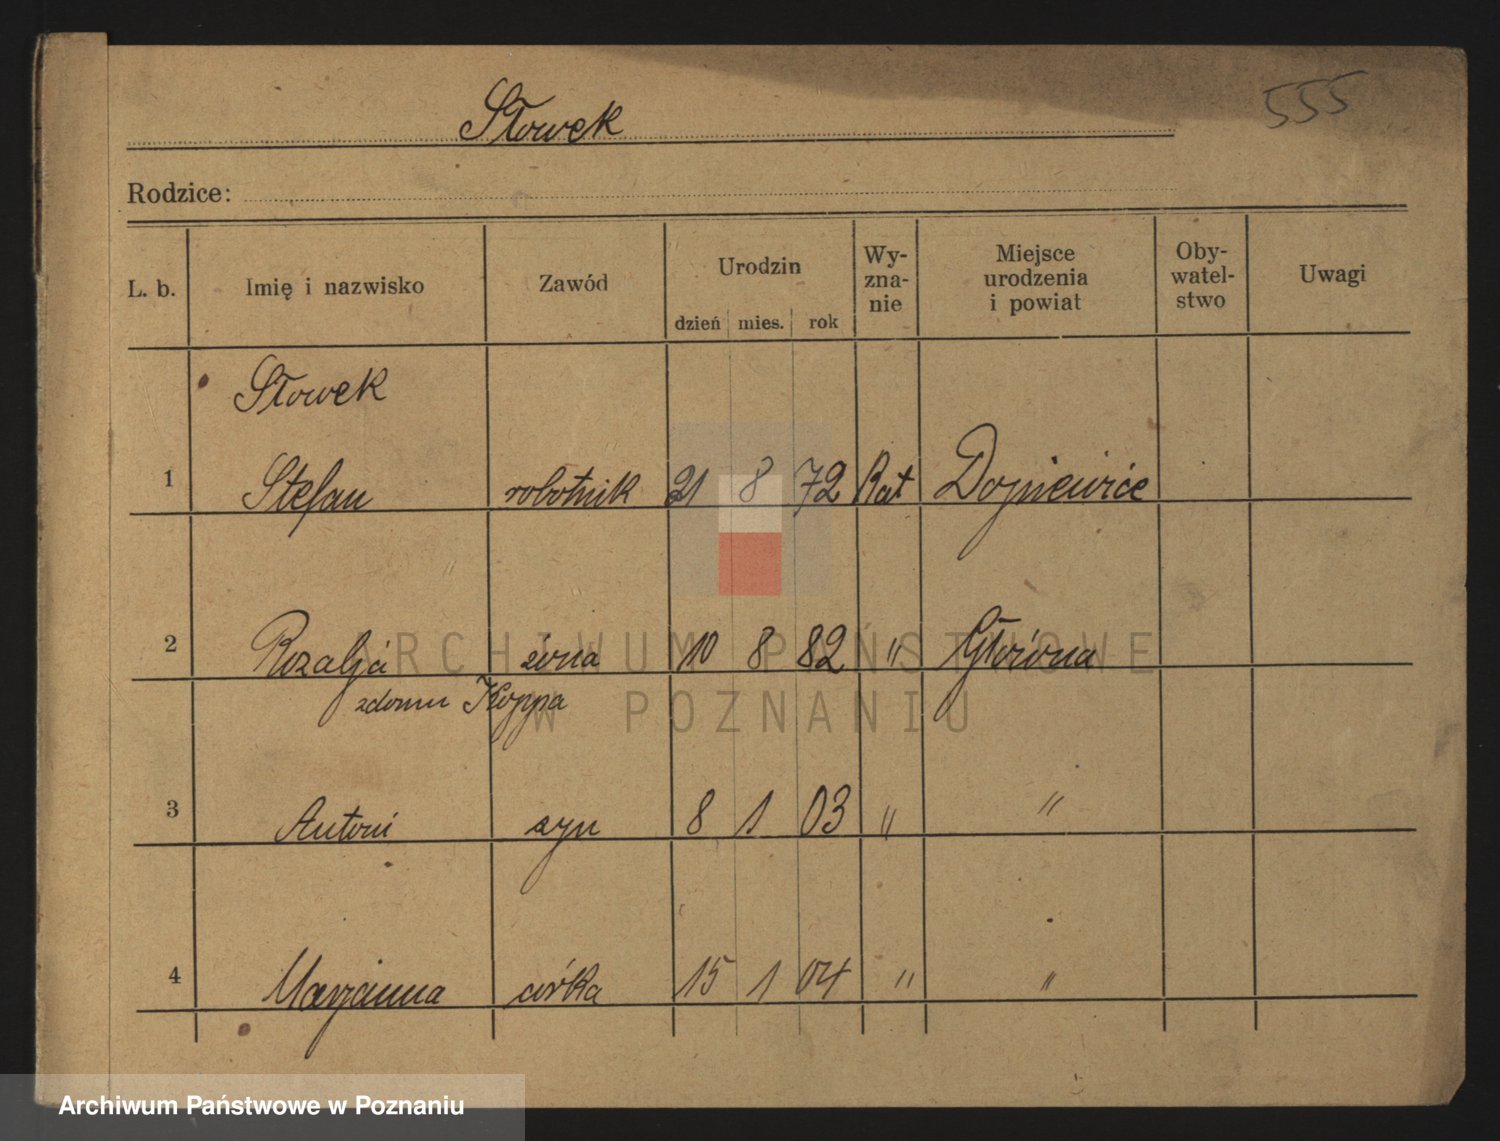 555
Słowek
Rodzice:
L. b. Imię i nazwisko Zawód Urodzin dzień mies. rok Wy-zna-nie Miejsce urodzenia i powiat Oby-watel-stwo Uwagi
Słowek
1 Stefan robotnik 21 8 72 Kat
2 Rozalja żona 10 8 82 " Główna
zdomu Koppa
3 Antoni syn 8 1 03 " "
4 Marjanna córka 15 1 04 " "
ARCHIWUM PAŃSTWOWE
W POZNANIU
Archiwum Państwowe w Poznaniu